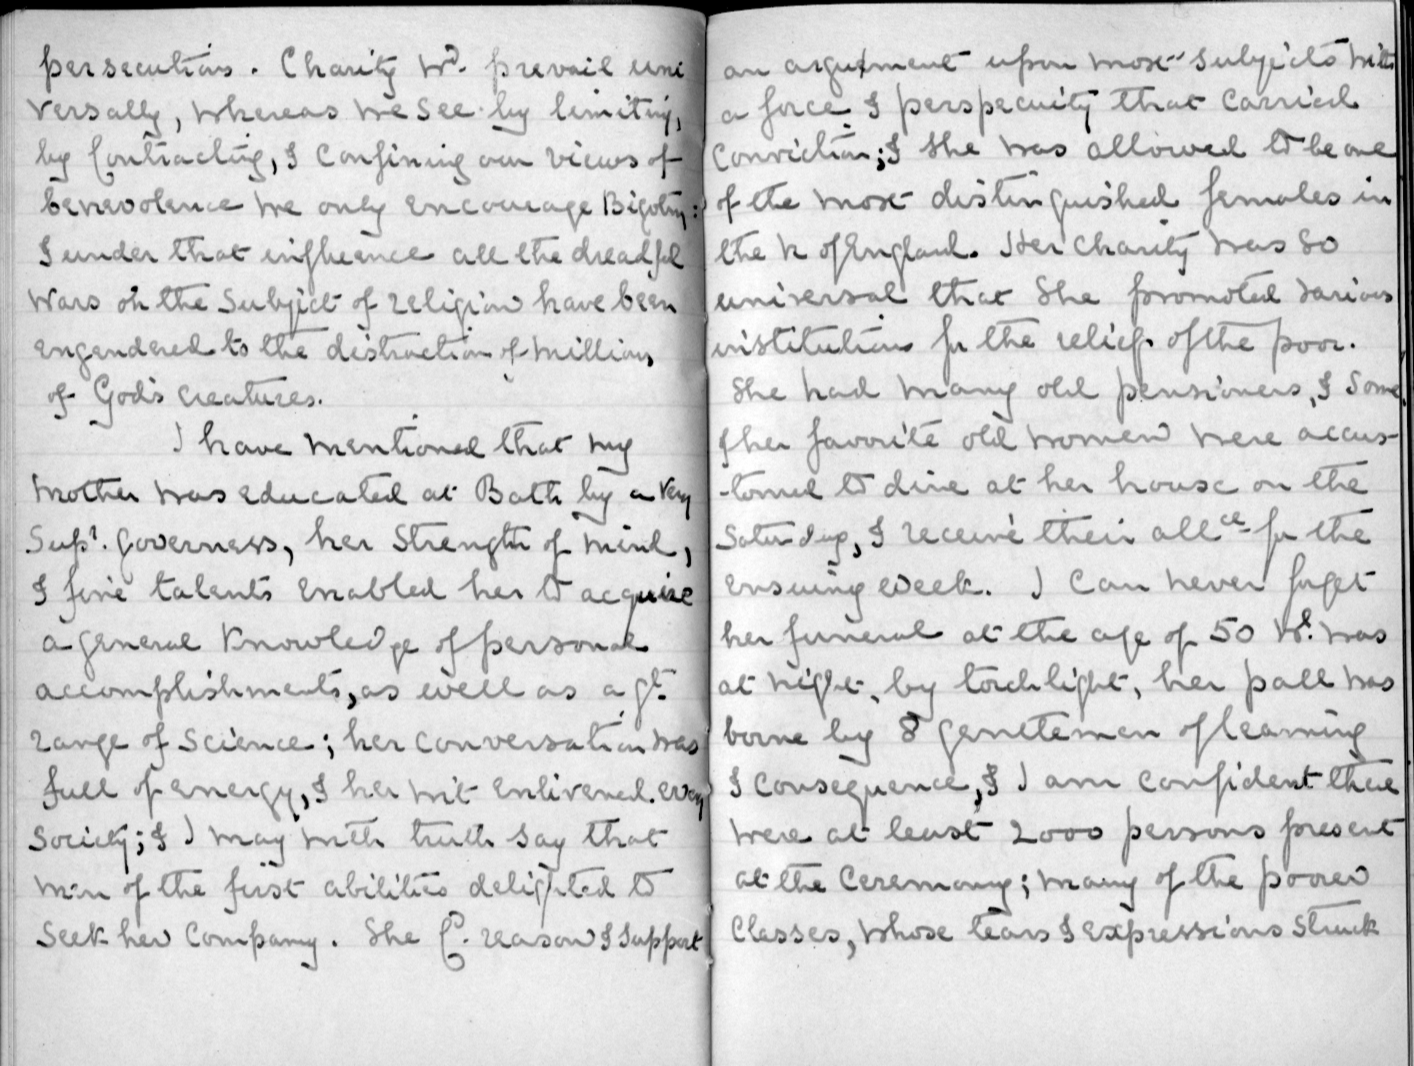 persecutions. Charity wd. prevail uni
versally, whereas we see by limiting,
by contracting, & confining our views of
benevolence we only encourage Bigotry:
& under that influence all the dreadful
Wars on the subject of religion have been
engendered to the distruction of millions
of God's creatures.
I have mentioned that my
Mother was educated at Bath by a very
Supr. governess, her strength of mind,
& fine talents enabled her to acquire
a general knowledge of personal
accomplishments, as well as a gt.
range of science; her conversation was
full of energy, & her wit enlivened every
Society; & I may with truth say that
men of the first abilities delighted to
seek her company. She Cd. reason & support
an argument upon most subjects with
a force & perspecuity that carried
conviction; & she was allowed to be one
of the most distinguished females in
the K of England. Her charity was so
universal that she promoted various
institutions for the relief of the poor.
She had many old pensioners, & some
& her favorite old women were accus-
-tomed to dine at her house on the
Saturday, & receive their allce for the
ensuing week. I can never forget
her funeral at the age of 50 wh. was
at night, by torchlight, her pall was
borne by 8 gentlemen of learning
& consequence, & I am confident there
were at least 2000 persons present
at the ceremony; many of the poorer
classes, whose tears & expressions struck